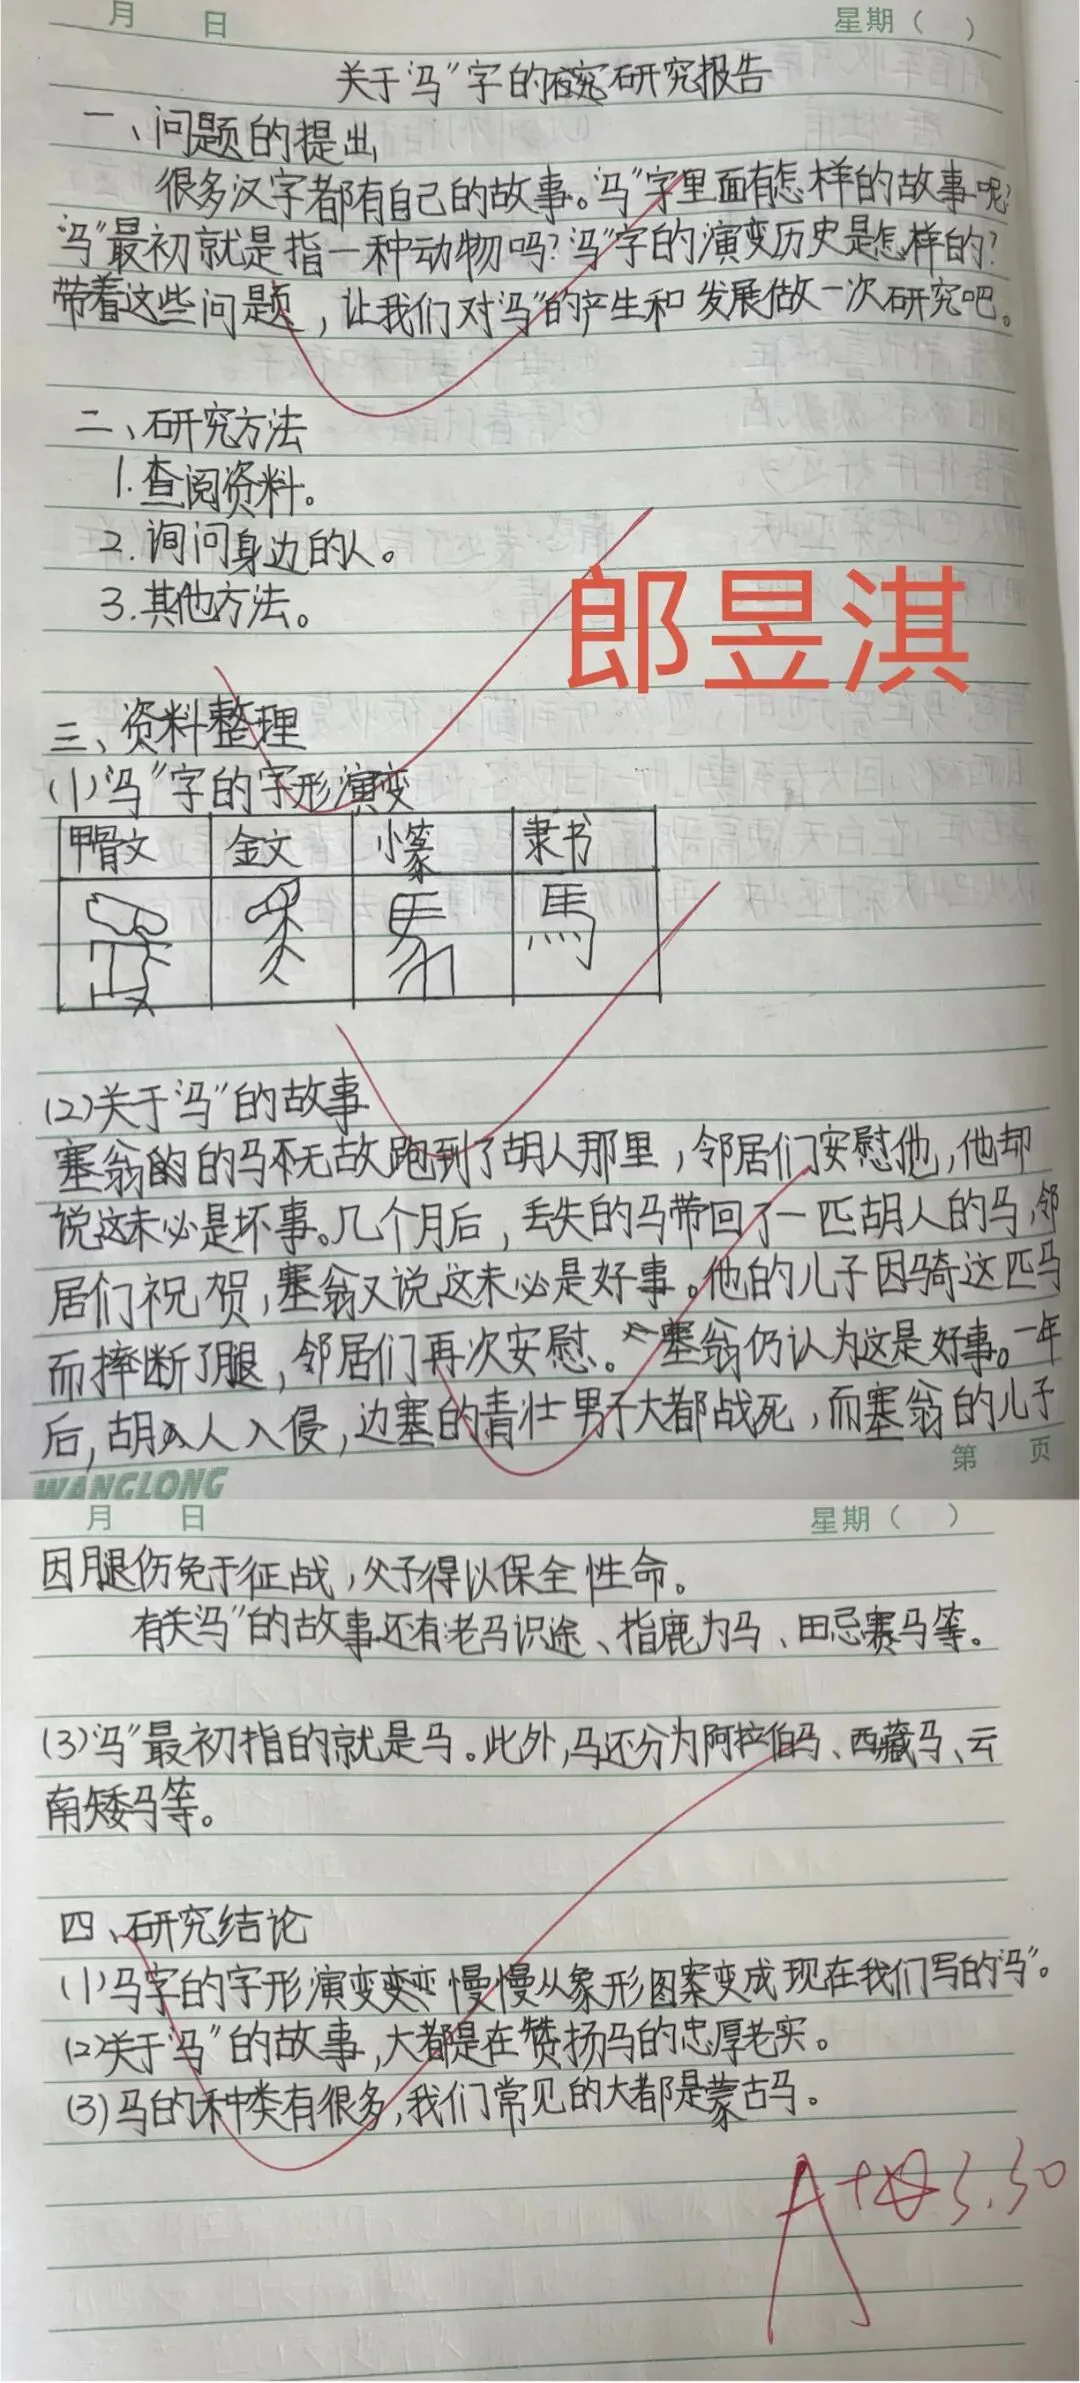 月 日 星期（ ）
关于“马”字的研究报告
一、问题的提出
很多汉字都有自己的故事。“马”字里面有怎样的故事呢?
“马”最初就是指一种动物吗?“马”字的演变历史是怎样的?
带着这些问题，让我们对“马”的产生和发展做一次研究吧。
二、研究方法
1.查阅资料。
2.询问身边的人。
3.其他方法。
郎昱淇
三、资料整理
(1)“马”字的字形演变
甲骨文 金文 小篆 隶书
馬
(2)关于“马”的故事
塞翁的的马无故跑到了胡人那里，邻居们安慰他，他却
说这未必是坏事。几个月后，丢失的马带回了一匹胡人的马，邻
居们祝贺，塞翁又说这未必是好事。他的儿子因骑这匹马
而摔断了腿，邻居们再次安慰。塞翁仍认为这是好事。一年
后，胡人入侵，边塞的青壮男子大都战死，而塞翁的儿子
WANGLONG 第 页
月 日 星期（ ）
因腿伤免于征战，父子得以保全性命。
有关“马”的故事还有老马识途、指鹿为马、田忌赛马等。
(3)“马”最初指的就是马。此外，马还分为阿拉伯马、西藏马、云
南矮马等。
四、研究结论
(1)马字的字形演变变变慢慢从象形图案变成现在我们写的“马”。
(2)关于“马”的故事，大都是在赞扬马的忠厚老实。
(3)马的种类有很多，我们常见的大都是蒙古马。
A+ 3.30